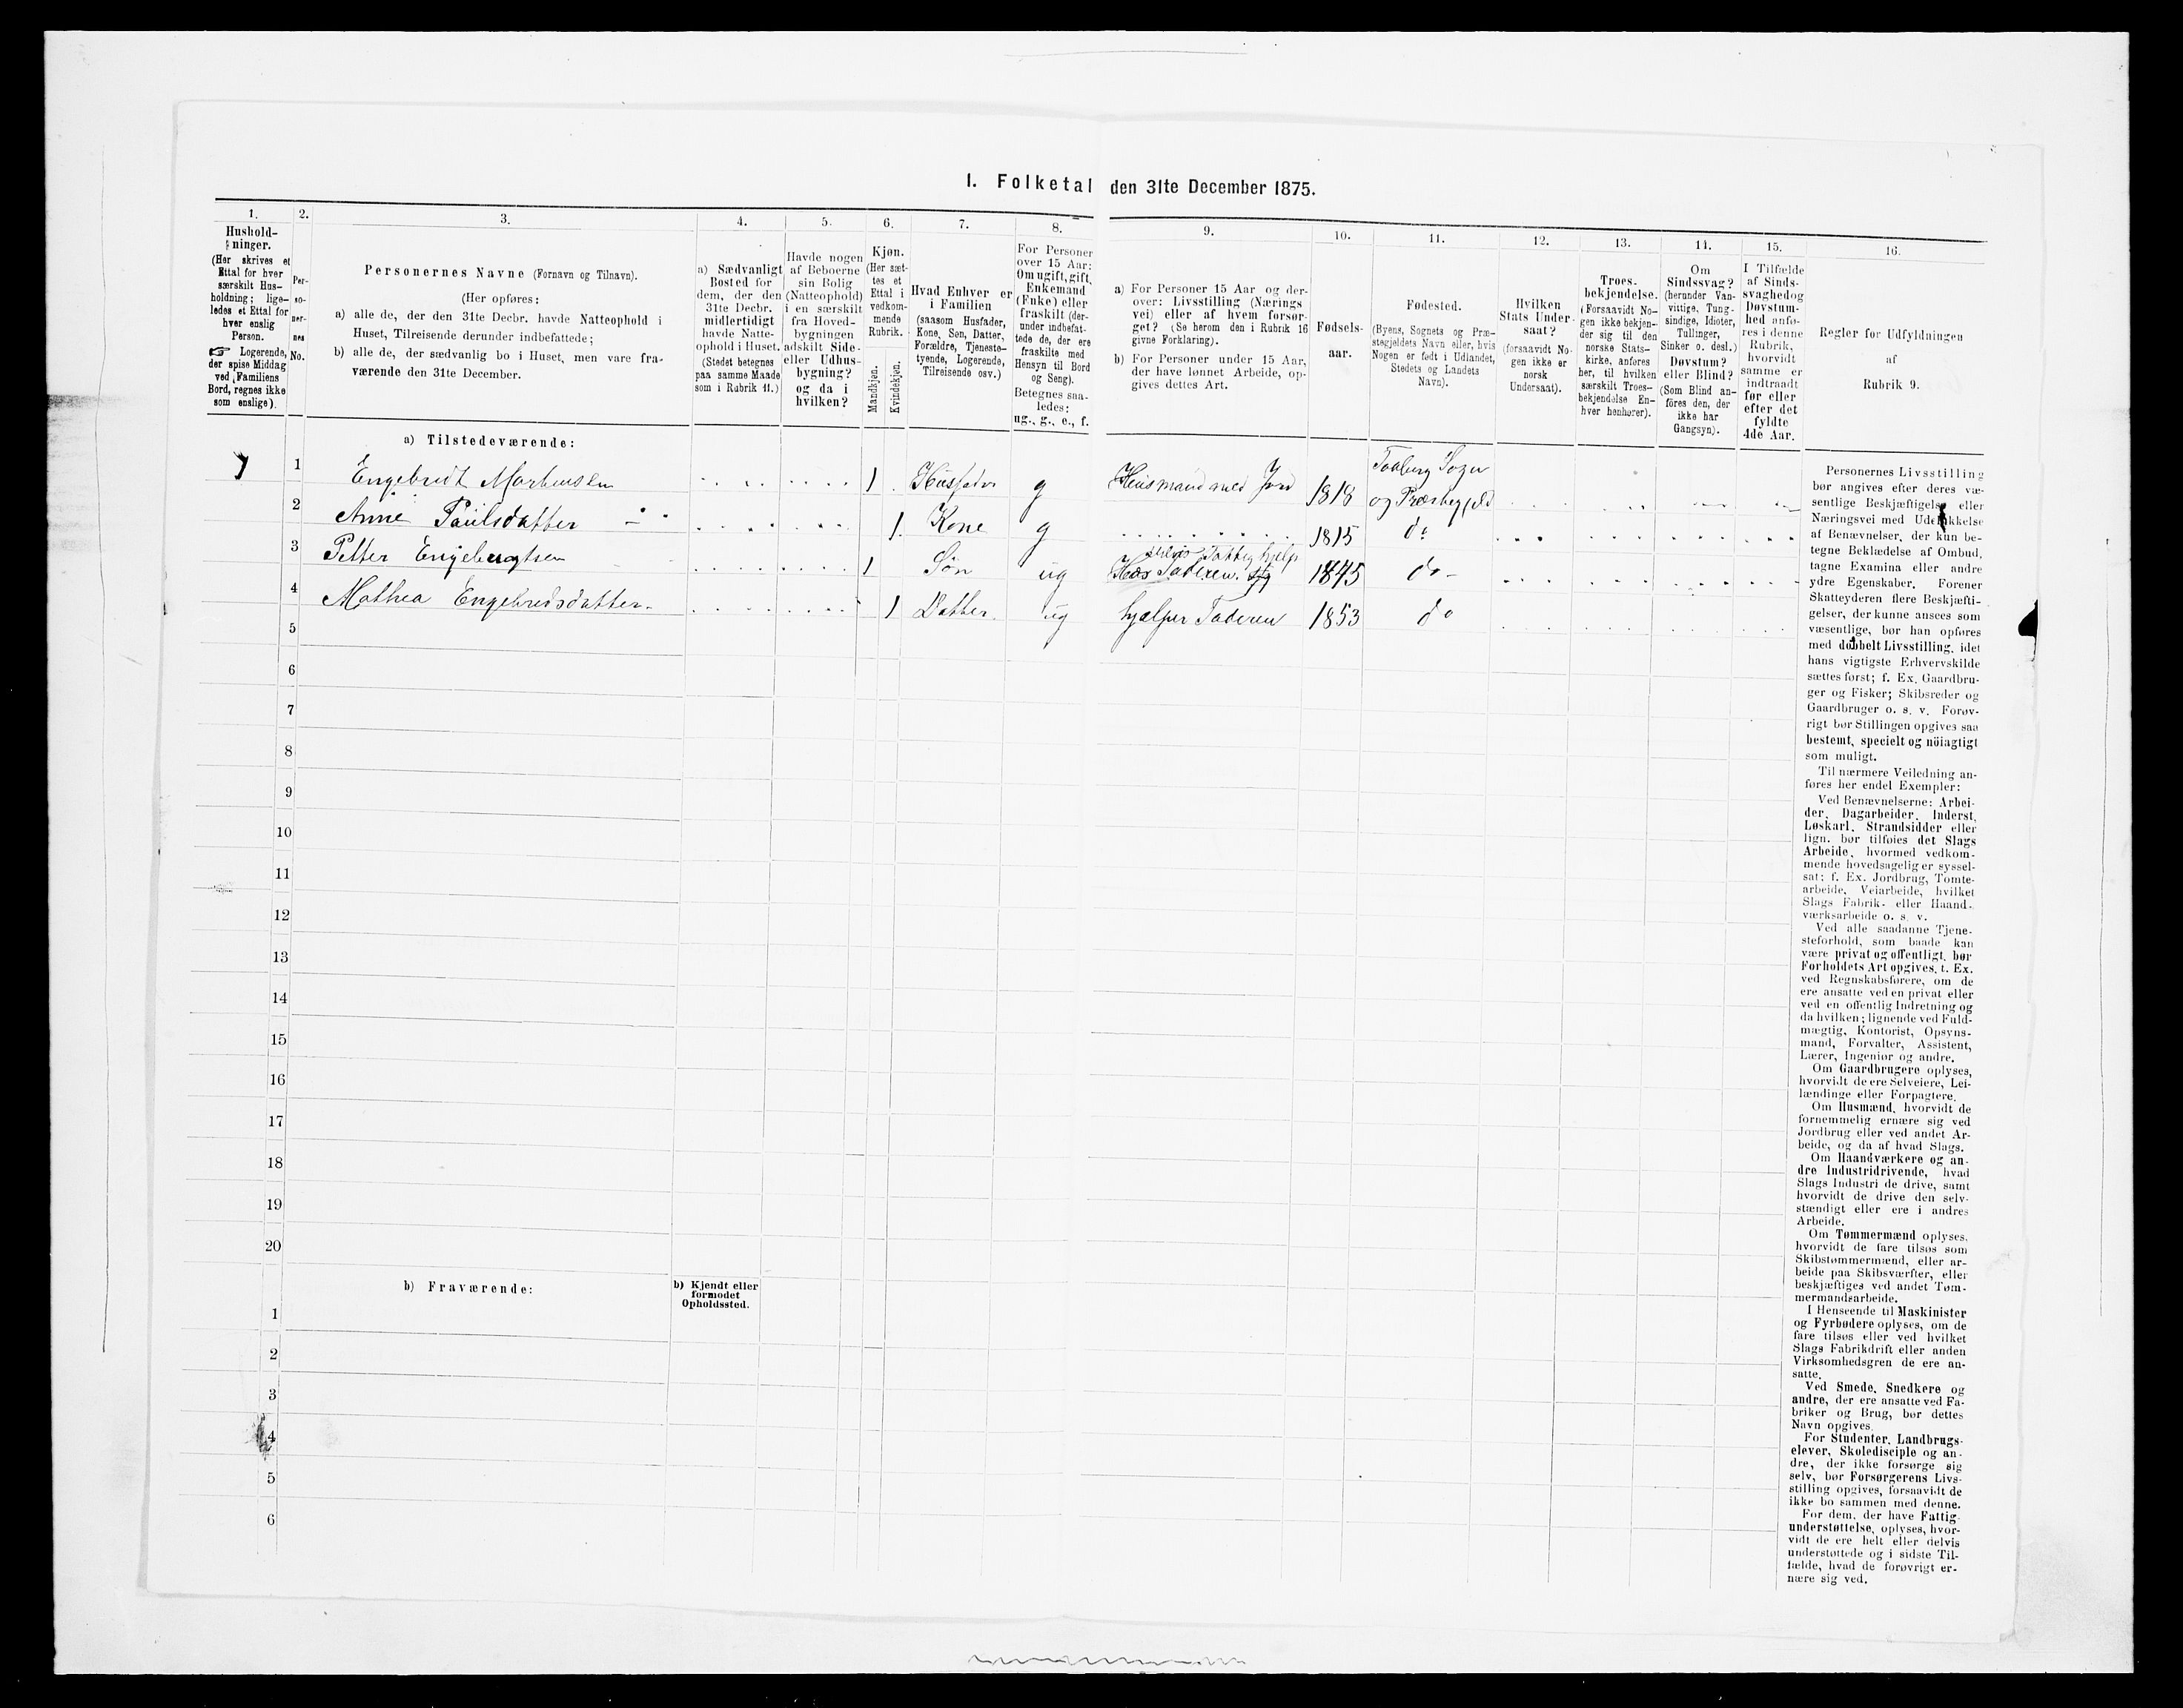 I. Folketal den 31te December 1875.
1.
Hushold-
ninger.
(Her skrives et
Ettal for hver
særskilt Hus-
holdning; lige-
ledes et Ettal for
hver enslig
Person.
☞ Logerende,
der spise Middag
ved Familiens
Bord, regnes ikke
som enslige).
2.
Per-
so-
ner-
nes
No.
3.
Personernes Navne (Fornavn og Tilnavn).
(Her opføres:
a) alle de, der den 31te Decbr. havde Natteophold i
Huset, Tilreisende derunder indbefattede;
b) alle de, der sædvanlig bo i Huset, men vare fra-
værende den 31te December.
4.
a) Sædvanligt
Bosted for
dem, der den
31te Decbr.
midlertidigt
havde Natte-
ophold i Huset.
(Stedet betegnes
paa samme Maade
som i Rubrik 11.)
5.
Havde nogen
af Beboerne
sin Bolig
(Natteophold)
i en særskilt
fra Hoved-
bygningen
adskilt Side-
eller Udhus-
bygning?
og da i
hvilken?
6.
Kjøn.
(Her sæt-
tes et
Ettal i
vedkom-
mende
Rubrik.
Mandkjøn.
Kvindekjøn.
7.
Hvad Enhver er
i Familien
(saasom Husfader,
Kone, Søn, Datter,
Forældre, Tjeneste-
tyende, Logerende,
Tilreisende osv.)
8.
For Personer
over 15 Aar:
Om ugift, gift,
Enkemand
(Enke) eller
fraskilt (der-
under indbefat-
tede de, der ere
fraskilte med
Hensyn til Bord
og Seng).
Betegnes saa-
ledes:
ug., g., e., f.
9.
a) For Personer 15 Aar og der-
over: Livsstilling (Nærings
vei) eller af hvem forsør-
get? (Se herom den i Rubrik 16
givne Forklaring).
b) For Personer under 15 Aar,
der have lønnet Arbeide, op-
gives dettes Art.
10.
Fødsels-
aar.
11.
Fødested.
(Byens, Sognets og Præ-
stegjeldets Navn eller, hvis
Nogen er født i Udlandet,
Stedets og Landets
Navn).
12.
Hvilken
Stats Under-
saat?
(forsaavidt No-
gen ikke er
norsk
Undersaat).
13.
Troes-
bekjendelse.
(Forsaavidt No-
gen ikke bekjen-
der sig til den
norske Stats-
kirke, anføres
her, til hvilken
særskilt Troes-
bekjendelse En-
hver henhører).
14.
Om
Sindssvag?
(herunder Van-
vittige, Tung-
sindige, Idioter,
Tullinger,
Sinker o. desl.)
Døvstum?
eller Blind?
(Som Blind an-
føres den, der
ikke har
Gangsyn).
15.
I Tilfælde
af Sinds-
svaghed og
Døvstum-
hed anfø-
res i denne
Rubrik,
hvorvidt
samme er
indtraadt
før eller
efter det
fyldte
4de Aar.
16.
Regler for Udfyldningen
af
Rubrik 9.
a) Tilstedeværende:
1 1 Engebridt Marthensen 1 Husfader g Huusmand med Jord 1818 Faaberg Sogn og Præstegjeld
2 Anne Paulsdatter 1 Kone g 1815 do
3 Petter Engebrigtsen 1 Søn ug Hos Faderen. 1845 do
4 Mathea Engebridsdatter 1 Datter ug hjælper Faderen 1853 do
5
6
7
8
9
10
11
12
13
14
15
16
17
18
19
20
b) Fraværende:
b) Kjendt eller
formodet
Opholdssted.
1
2
3
4
5
6
Personernes Livsstilling
bør angives efter deres væ-
sentlige Beskjæftigelse eller
Næringsvei med Udelukkelse
af Benævnelser, der kun be-
tegne Beklædelse af Ombud,
tagne Examina eller andre
ydre Egenskaber. Forener
Skatteyderen flere Beskjæfti-
gelser, der kunne ansees som
væsentlige, bør han opføres
med dobbelt Livsstilling, idet
hans vigtigste Erhvervskilde
sættes først; f. Ex. Gaardbru-
ger og Fisker; Skibsreder og
Gaardbruger o. s. v. Forøv-
rigt bør Stillingen opgives saa
bestemt, specielt og nöiagtigt
som muligt.
Til nærmere Veiledning an-
føres her endel Exempler:
Ved Benævnelserne: Arbei-
der, Dagarbeider, Inderst,
Løskarl, Strandsidder eller
lign. bør tilføies det Slags
Arbeide, hvormed vedkom-
mende hovedsagelig er syssel-
sat; f. Ex. Jordbrug, Tomte-
arbeide, Veiarbeide, hvilket
Slags Fabrik- eller Haand-
værksarbeide o. s. v.
Ved alle saadanne Tjene-
steforhold, som baade kan
være privat og offentligt, bør
Forholdets Art opgives, t. Ex.
ved Regnskabsførere, om de
ere ansatte ved en privat eller
ved en offentlig Indretning og
da hvilken; lignende ved Fuld-
mægtig, Kontorist, Opsyns-
mand, Forvalter, Assistent,
Lærer, Ingeniør og andre.
Om Gaardbrugere oplyses,
hvorvidt de ere Selveiere, Lei-
lændinge eller Forpagtere.
Om Husmænd, hvorvidt de
fornemmelig ernære sig ved
Jordbrug eller ved andet Ar-
beide, og da af hvad Slags.
Om Haandværkere og an-
dre Industridrivende, hvad
Slags Industri de drive, samt
hvorvidt de drive den selv-
stændigt eller ere i andres
Arbeide.
Om Tømmermænd oplyses,
hvorvidt de fare tilsøs som
Skibstømmermænd, eller ar-
beide paa Skibsværfter, eller
beskjæftiges ved andet Tøm-
mermandsarbeide.
I Henseende til Maskinister
og Fyrbødere oplyses, om de
fare tilsøs eller ved hvilket
Slags Fabrikdrift eller anden
Virksomhedsgren de ere an-
satte.
Ved Smede, Snedkere og
andre, der ere ansatte ved Fa-
briker og Brug, bør dettes
Navn opgives.
For Studenter, Landbrugs-
elever, Skoledisciple og an-
dre, der ikke forsørge sig
selv, bør Forsørgerens Livs-
stilling opgives, forsaavidt de
ikke bo sammen med denne.
For dem, der have Fattig-
understøttelse, oplyses, hvor-
vidt de ere helt eller delvis
understøttede og i sidste Til-
fælde, hvad de forøvrigt er-
nære sig ved.